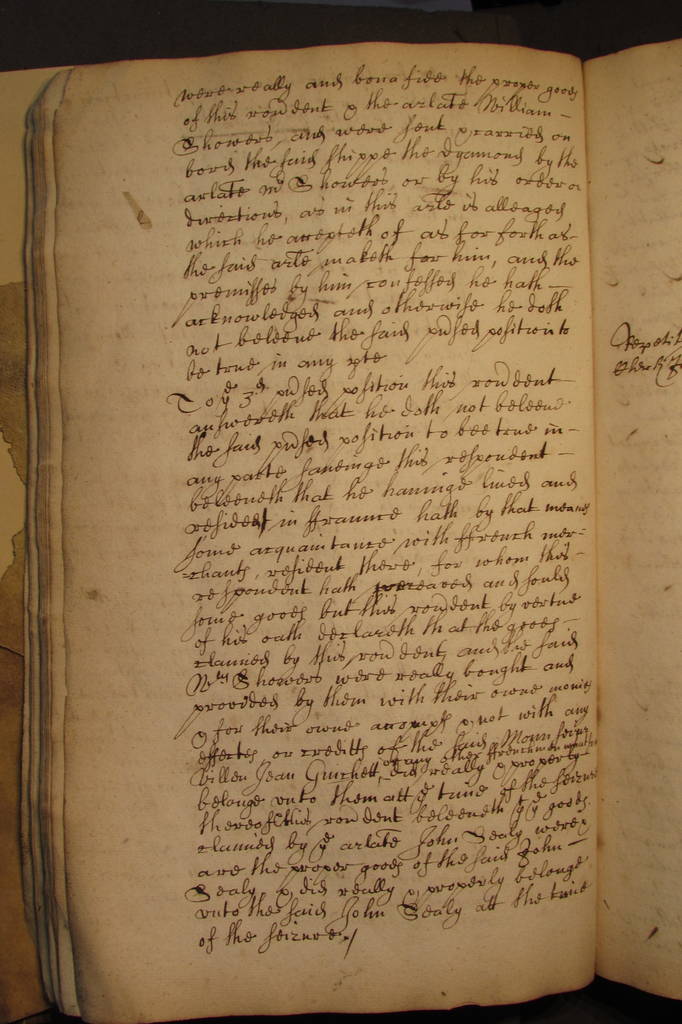 were really and bona fide the proper goods
of this rondent & the arlate William
Showers, and were sent & carried on
bord the said shippe the Dyamond by the
arlate Mr Showers or by his order or
directions, as in this arle is alleaged
which he accepteth of as far forth as
the said arle maketh for him, and the
premisses by him confessed he hath
acknowledged and otherwise he doth
not beleeve the said pnsed position to
be true in any pte
To ye 3d pnsed position this rondent
answereth that he doth not beleeve
the said pnsed position to bee true in
any parte saveinge this respondent
beleeveth that he haveinge lived and
resided in ffraunce hath by that meanes
some acquaintance with ffrench mer=
=chants, resident there, for whom this
respondent hath and sould
some goods but this rondent by vertue
of his oath declareth that the goods
claimed by this rondent, and the said
Mr Showers were really bought and
provided by them with their owne monies
& for their owne accompts & not with any
effectes or creditts of the said Monnseiur
Villen Jean Guichett, or any other ffrenchman
did really & properly
belonge unto them att ye time of the seizure
thereof this rondent beleeveth yt ye goods
claimed by ye arlate John Sealy were &
are the proper goods of the said John
Sealy, & did really & properly belonge
unto the said John Sealy att the time
of the seizure./